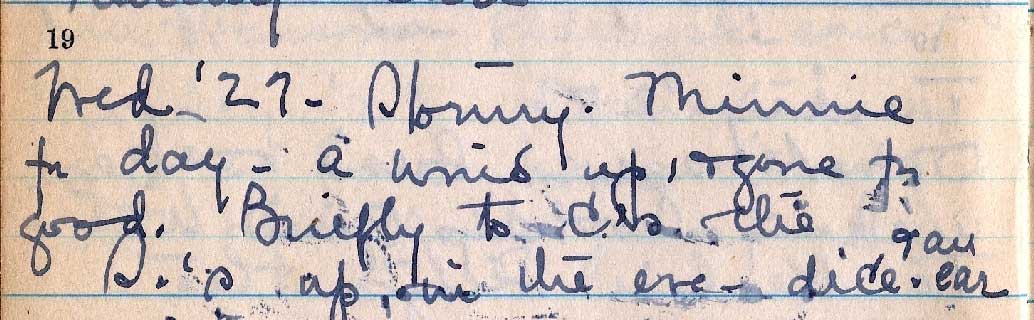 19
Wed '27- Stormy. Minnie
fr day - a up, & gone fr
good. Briefly to C.'s. the
S.'s up, in the eve - dice.